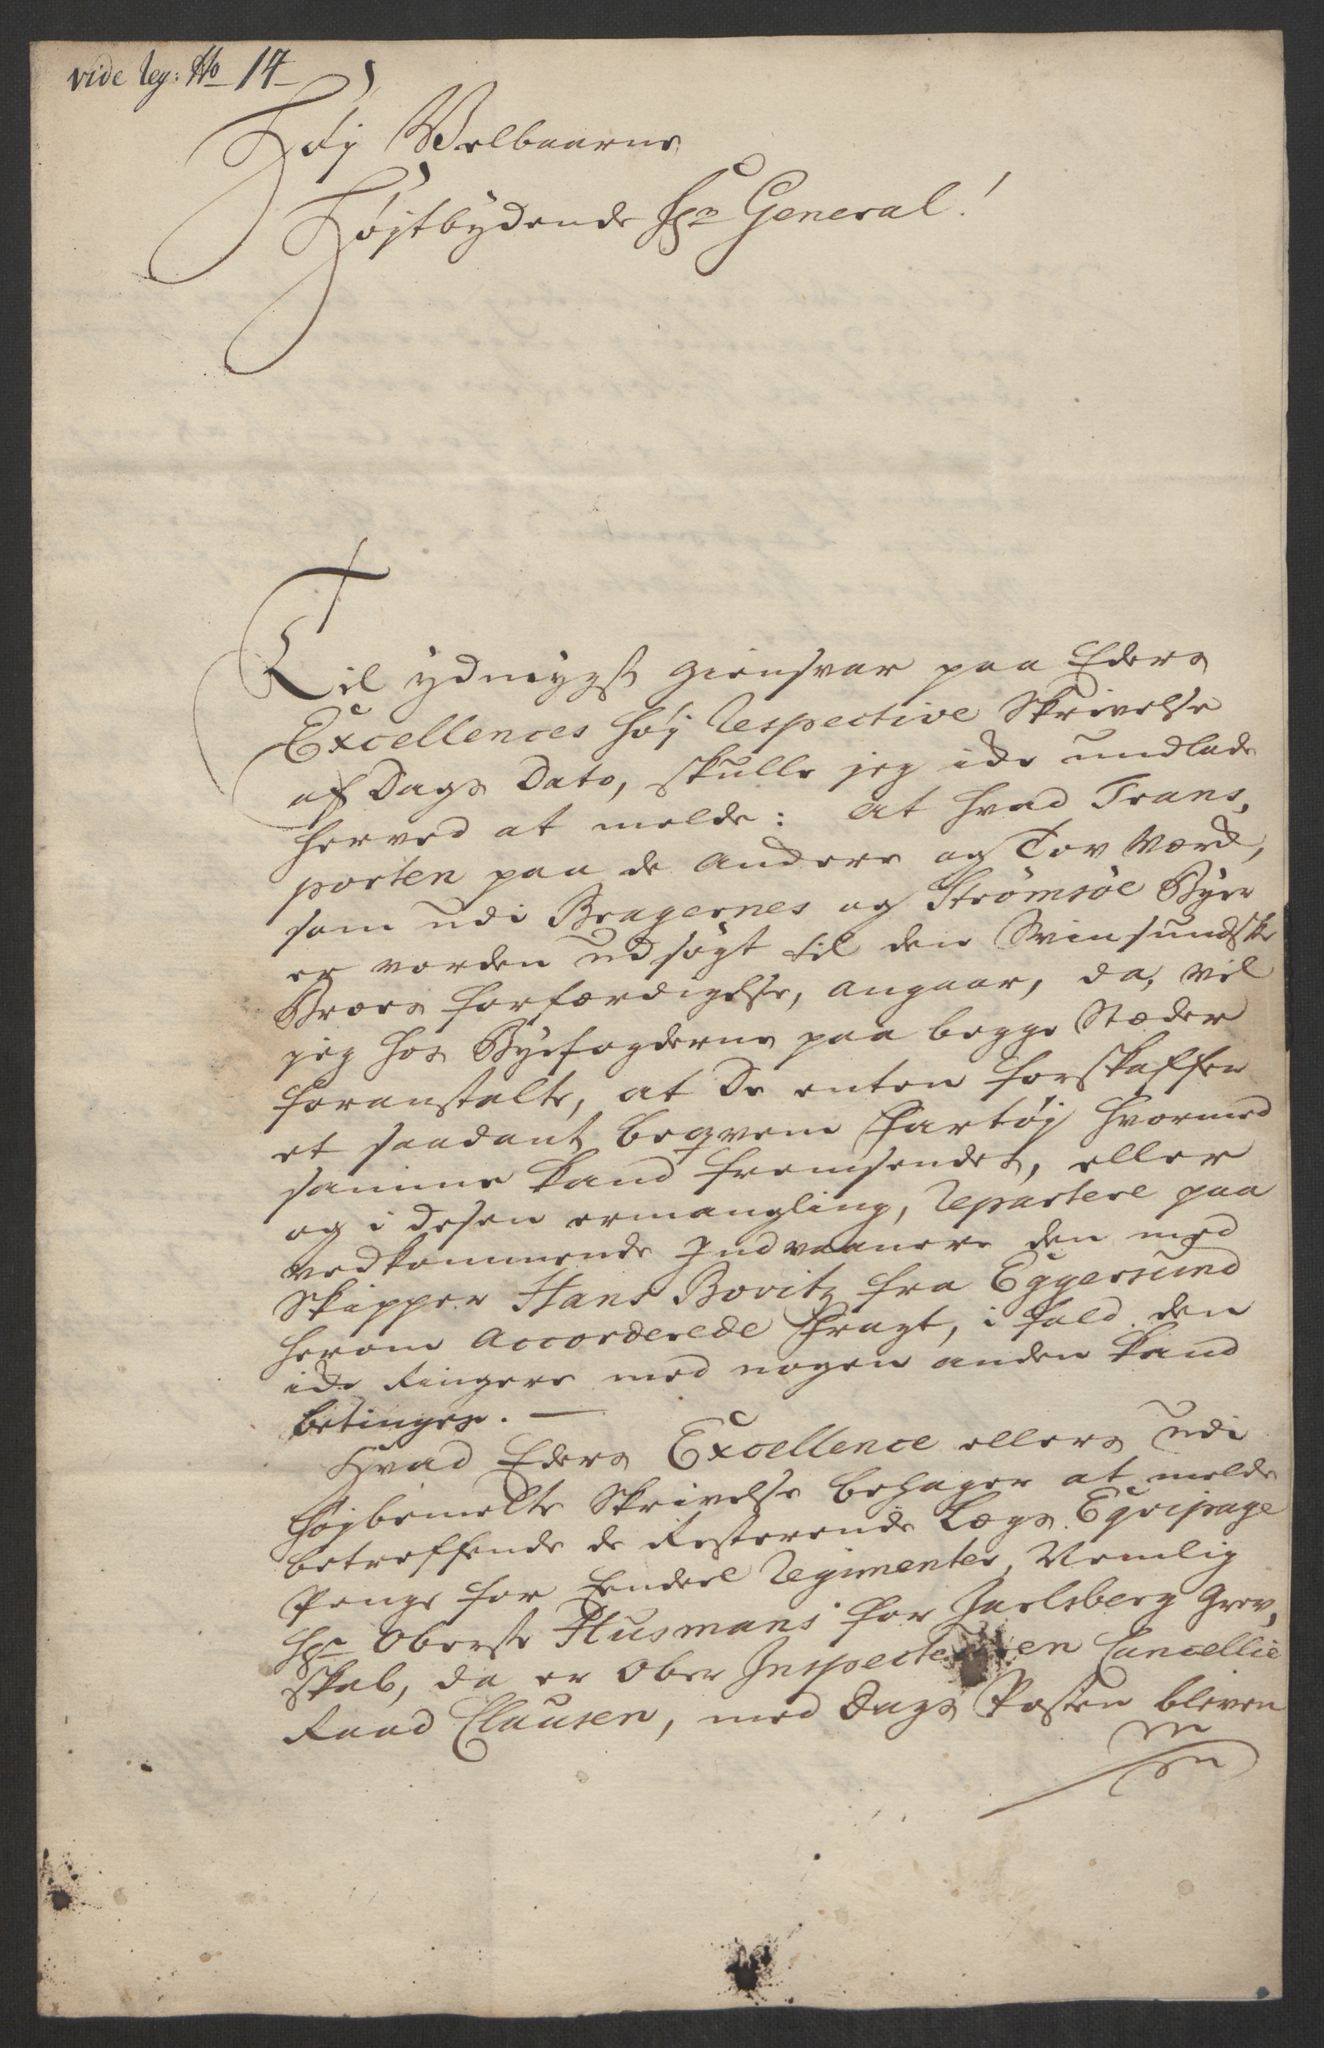 vide leg: No 14
Høy Velbaarne
Høystbydende Hr General!
Til ydmygst giensvar paa Eders
Excellences høy respective Skrivelse
af Dags Dato, skulle jeg icke undlade
herved at melde: at hvad Trans,
porten paa de Anckere og Tov Værck,
som udi Bragernes og Strømsøe Byer
er vorden udsøgt til den Svinsundske
Broes forfærdigelse, angaar, da, vil
jeg hos Byefogderne paa begge Stæder
foranstalte, at de enten forskaffer
et saadant beqvem Fartøy hvormed
samme kand fremsendes, eller
og i desen ermangling, repartere paa
vedkommende Indvaanere den med
Skipper Hans Bovitz fra Eggersund
herom Accorderede Fragt, i fald den
icke Ringere med nogen anden kand
betinges. —
Hvad Eders Excellence ellers udi
høybemelte Skrivelse behager at melde
betreffende de Resterende Lægs Eqvipage
Penge for Hendel Regimenter, Nemlig
Hr Oberste Husmans for Jarlsberg Grev,
skab, da er Ober Inspecteuren Cancellie
Raad Clausen, med Dags Posten bleven